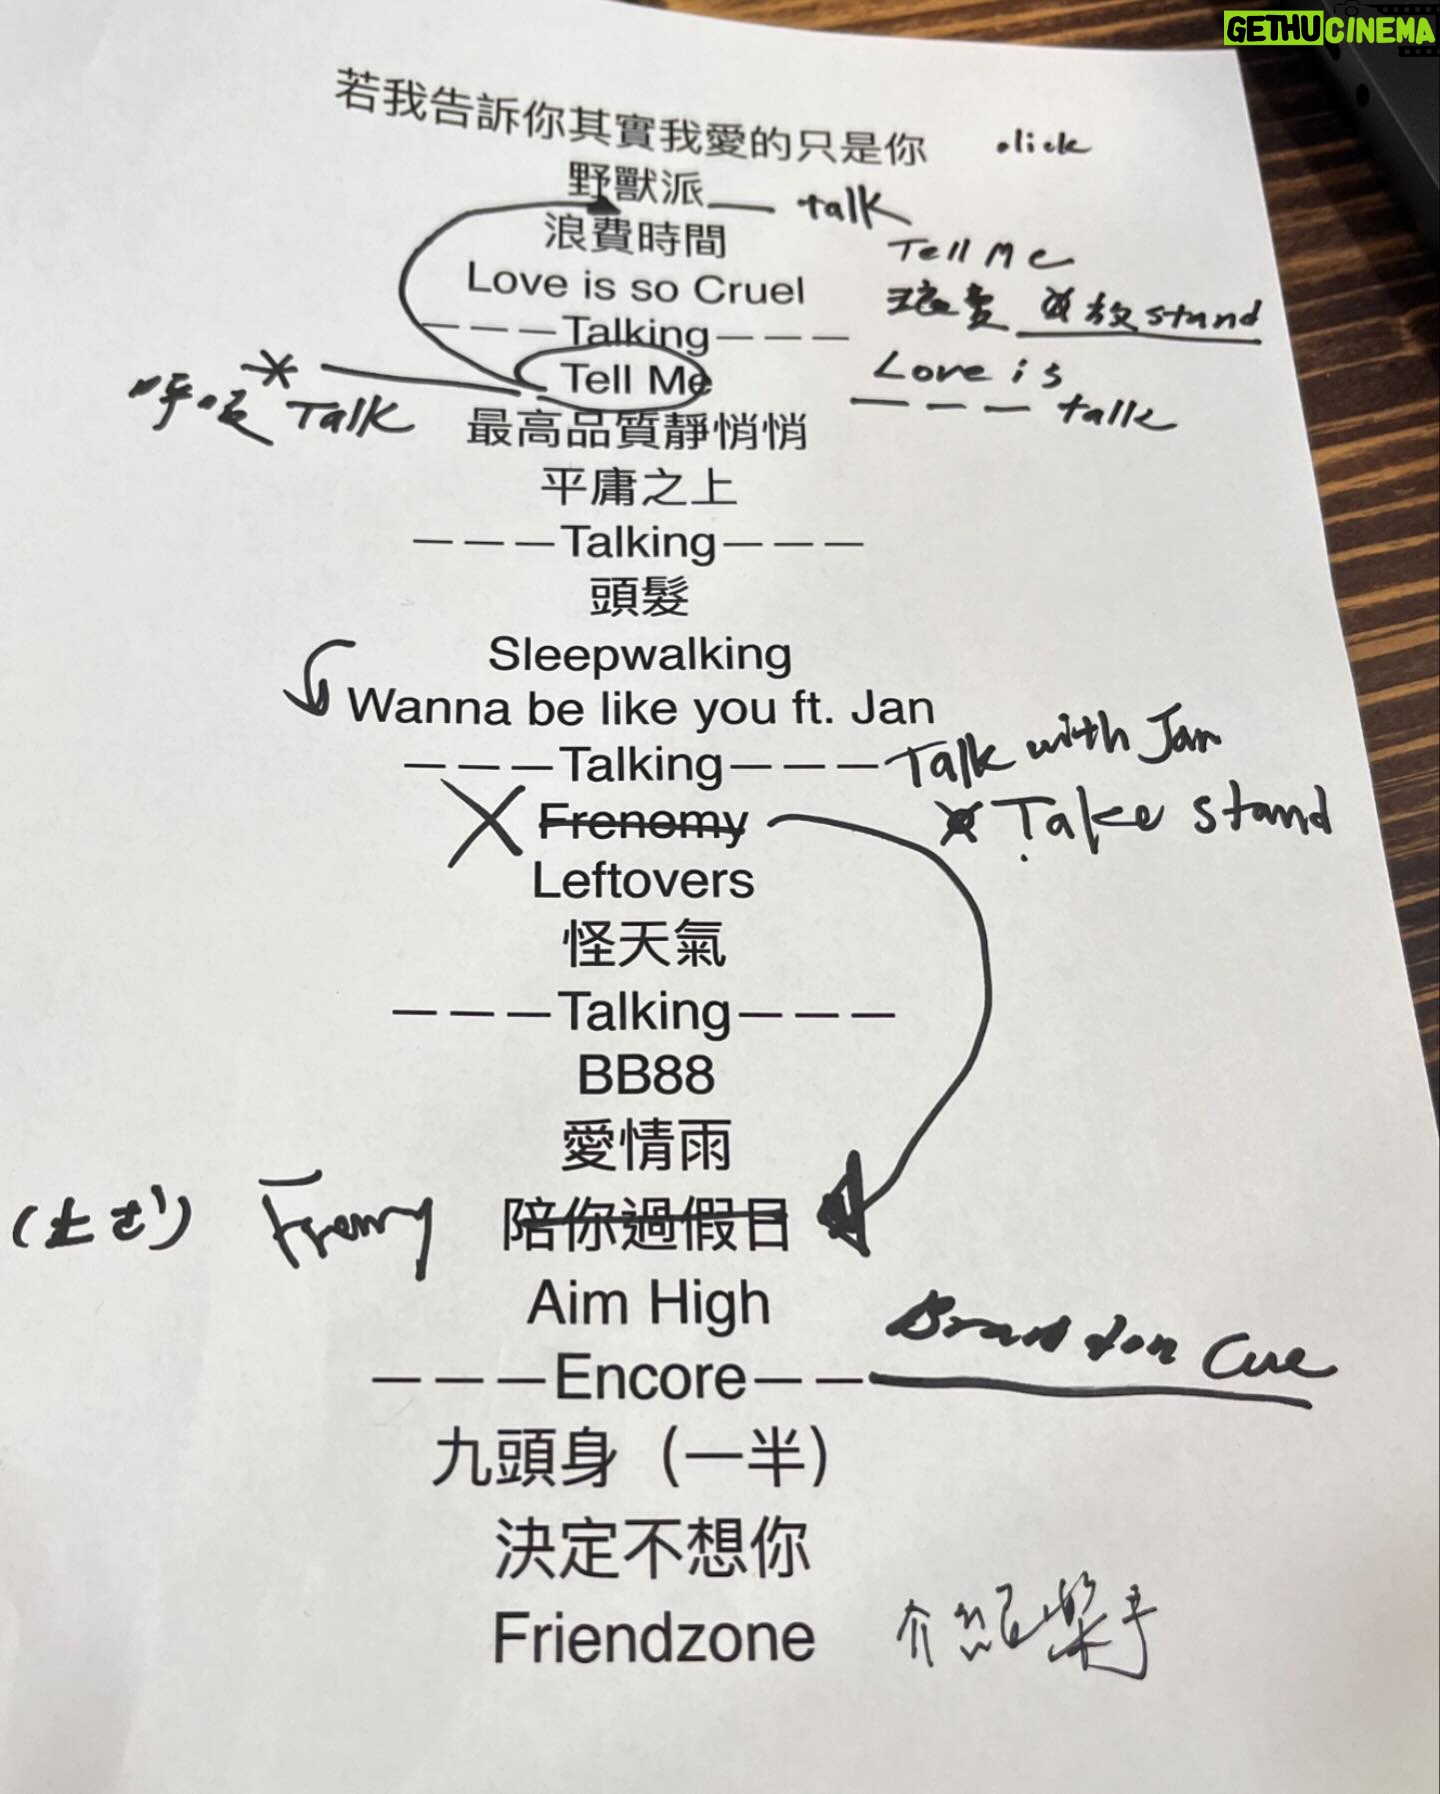 GETHUCINEMA
若我告訴你其實我愛的只是你 click
野獸派 talk
浪費時間 Tell Me
Love is so Cruel 浪費 放 stand
———Talking——— Love is
Tell Me ——— talk
Talk
最高品質靜悄悄
平庸之上
———Talking———
頭髮
Sleepwalking
Wanna be like you ft. Jan
———Talking——— Talk with Jan
Frenemy Take stand
Leftovers
怪天氣
———Talking———
BB88
愛情雨
Frenemy 陪你過假日
Aim High
———Encore—— Brandon Cue
九頭身（一半）
決定不想你
Friendzone 介紹樂手